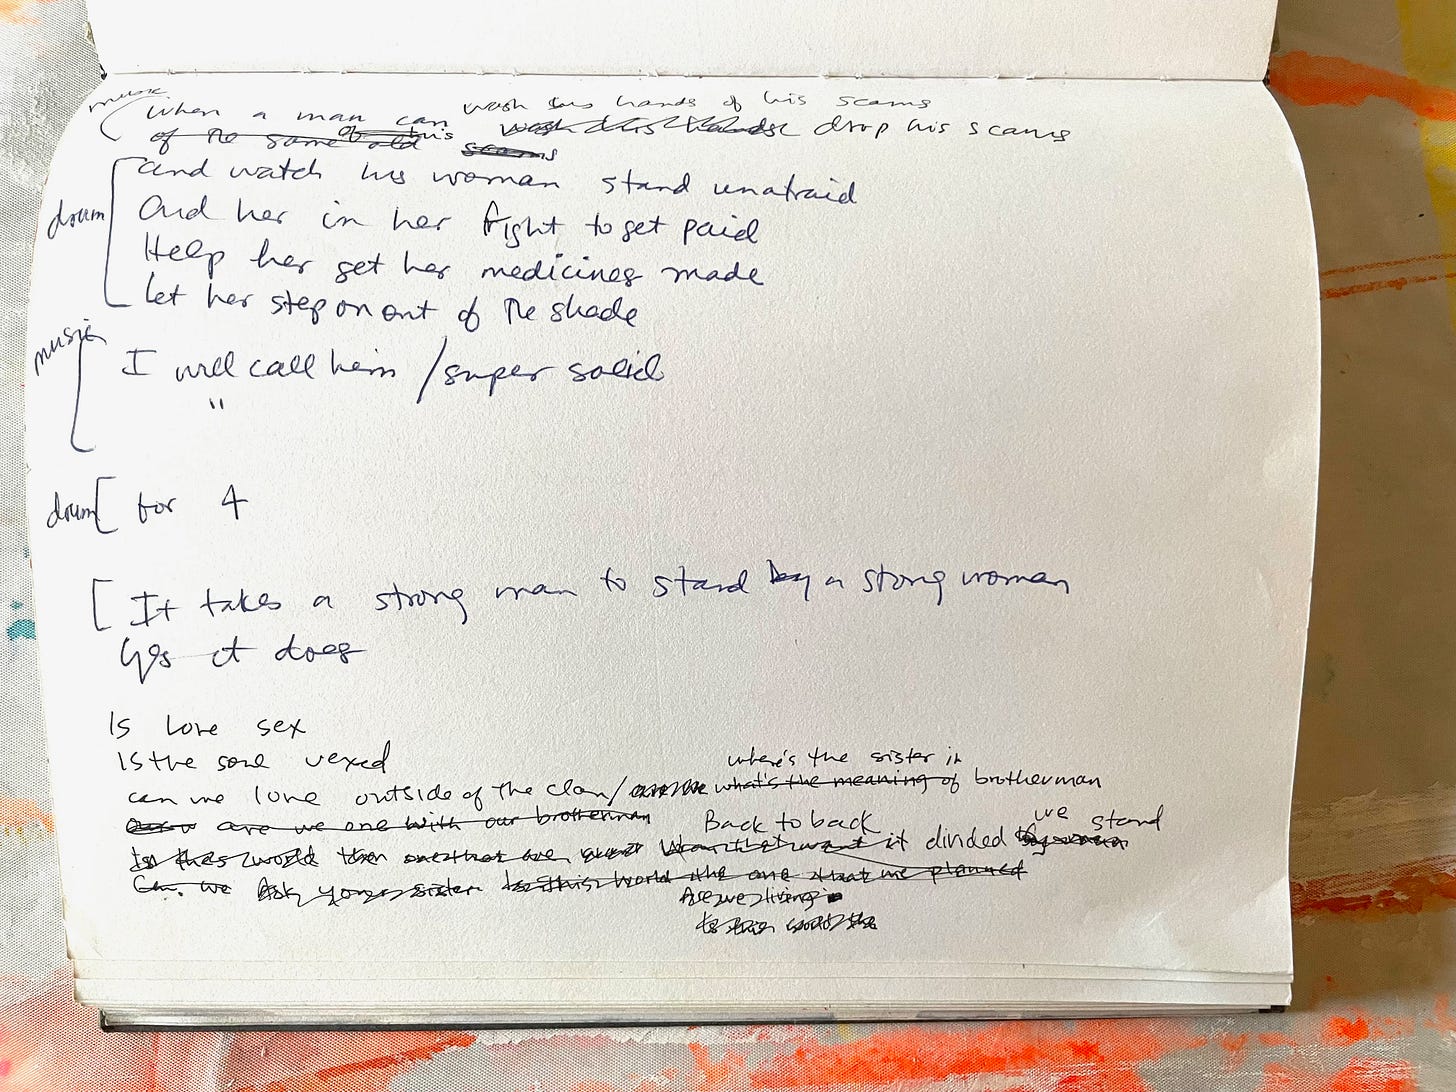 music
when a man can wash his hands of his scams
of the same old of this wash his hands drop his scams
scams
and watch his woman stand unafraid
And her in her fight to get paid
drum
Help her get her medicines made
Let her step on out of the shade
music
I will call him / super solid
"
drum [ for 4
[ It takes a strong man to stand by a strong woman
Yes it does
Is love sex
Is the soul vexed
where's the sister in
can we love outside of the clan / what's the meaning of brotherman
are we one with our brotherman
Back to back we stand
In this world then it divided
Can we Ask your sister is this world the one that we planned
Are we living in
Is this world the